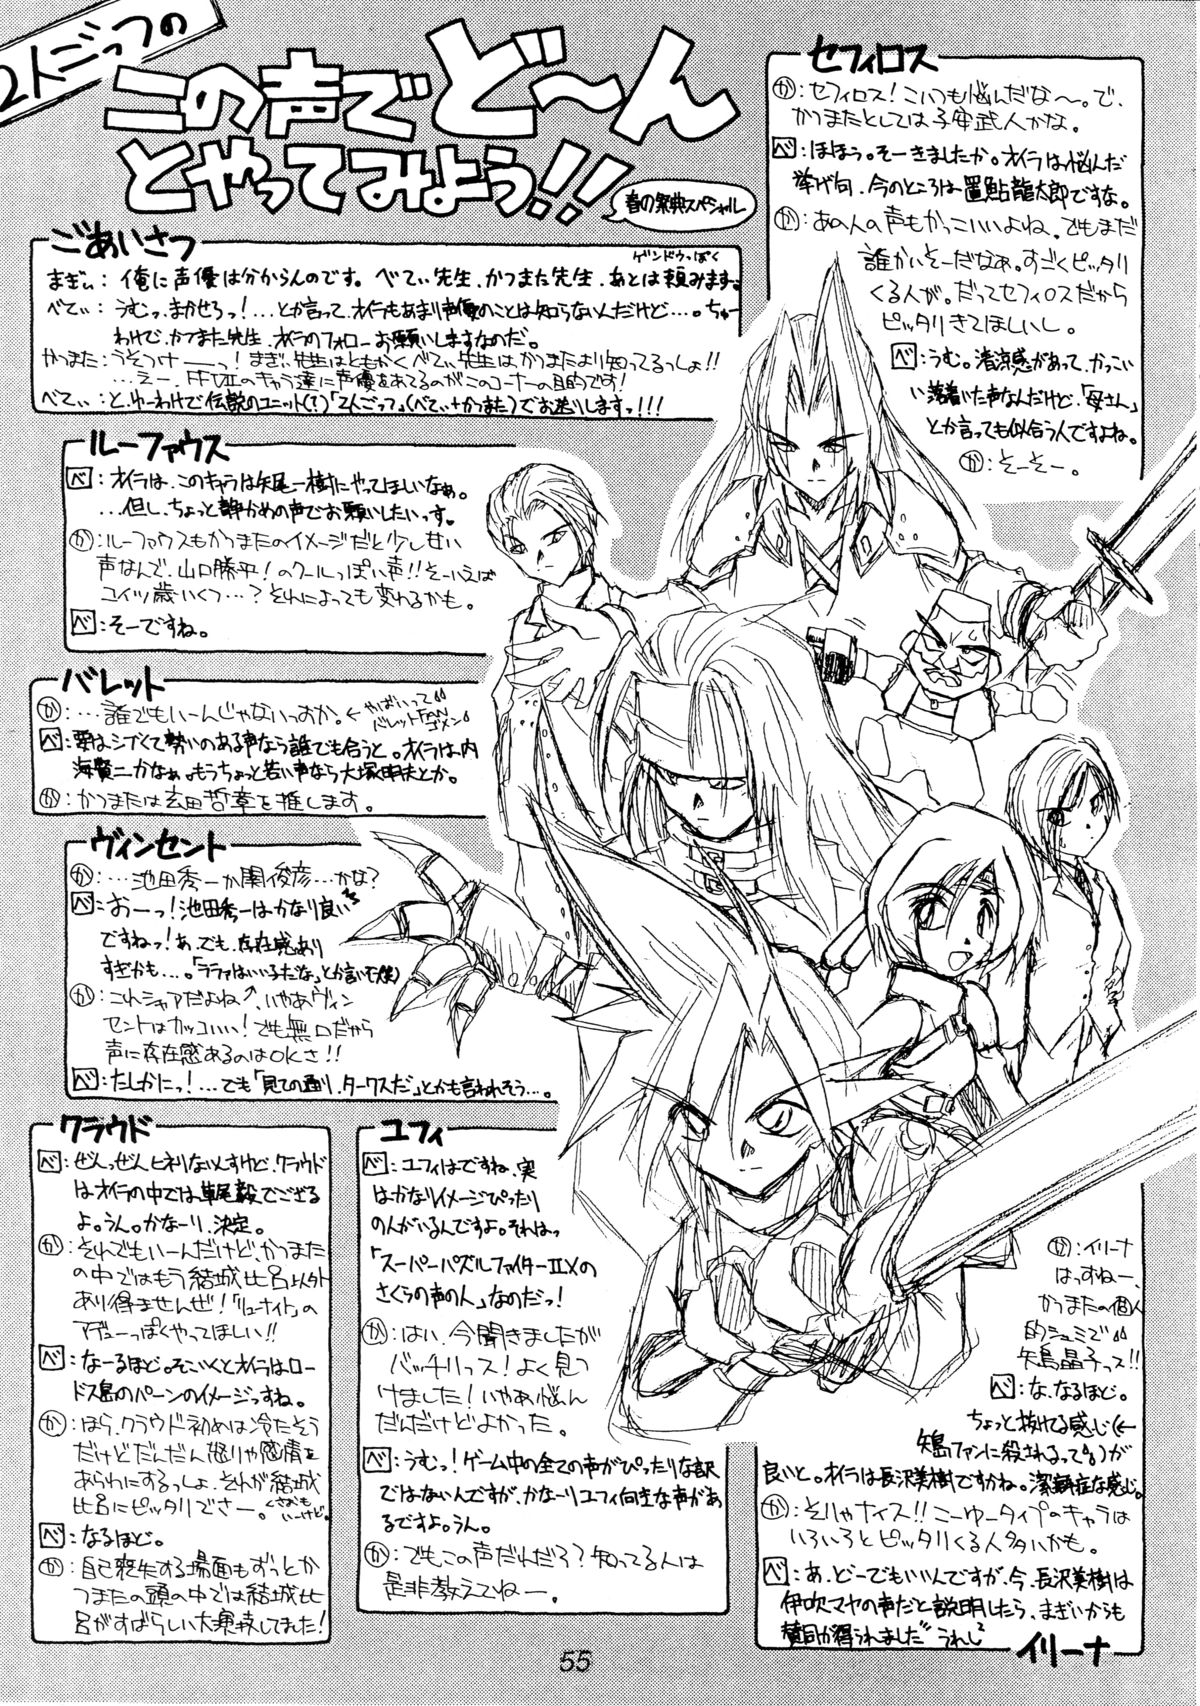 2人ごっつの
この声でど〜ん
とやってみよう!!
春の祭典スペシャル
ごあいさつ
ゲンドウっぽく
まぎぃ:俺に声優は分からんのです。べてぃ先生、かつまた先生、あとは頼みます。
べてぃ:うむっ、まかせろっ!…とか言って、オイラもあまり声優のことは知らないんだけど…。ちゅー
わけで、かつまた先生、オイラのフォローお願いしますなのだ。
かつまた:うそつけーーっ!まぎぃ先生はともかくべてぃ先生はかつまたより知ってるっしょ!!
…えー、FFVIIのキャラ達に声優をあてるのがこのコーナーの目的です!
べてぃ:と、ゆーわけで伝説のユニット(?)「2人ごっつ」(べてぃ+かつまた)でお送りしますっ!!!
ルーファウス
べ:オイラは、このキャラは矢尾一樹にやってほしいなぁ。
…但し、ちょっと静かめの声でお願いしたいっす。
か:ルーファウスもかつまたのイメージだと少し甘い
声なんで、山口勝平!のクールっぽい声!!そーいえば
コイツ歳いくつ…?それによっても変わるかも。
べ:そーですね。
バレット
か:…誰でもいーんじゃないっおか。←やばいって
バレットFAN
ゴメン
べ:要はシブくて勢いのある声なら誰でも合うと。オイラは内
海賢二かなぁ。もうちょっと若い声なら大塚明夫とか。
か:かつまたは玄田哲章を推します。
ヴィンセント
か:…池田秀一か関俊彦…かな?
べ:おーっ!池田秀一はかなり良い
ですねっ!あ、でも、存在感あり
すぎかも…。「ララァはいい子だな」とか言いそ(笑)
か:これシャアだよね、いやあヴィン
セントはカッコいい!でも無口だから
声に存在感あるのはOKさ!!
べ:たしかにっ!…でも「見ての通り、タークスだ」とかも言われそう…。
クラウド
べ:ぜんっぜんヒネリないんすけど、クラウド
はオイラの中では草尾毅でござる
よ。うん。かなーり、決定。
か:それでもいーんだけど、かつまた
の中ではもう結城比呂以外
あり得ませんぜ!「リューナイト」の
アデューっぽくやってほしい!!
べ:なーるほど。そこいくとオイラはロー
ドス島のパーンのイメージっすね。
か:ほら、クラウド初めは冷たそう
だけどだんだん怒りや感情を
あらわにするっしょ、それが結城
比呂にピッタリでさー。
べ:なるほど。
か:自己喪失する場面もずっとか
つまたの頭の中では結城比
呂がすばらしい大爆発してました!
ユフィ
べ:ユフィはですね、実
はかなりイメージぴったり
の人がいるんですよ。それはっ
「スーパーパズルファイターIIXの
さくらの声の人」なのだっ!
か:はい、今聞きましたが
バッチリっス!よく見つ
けました!いやあ悩ん
だんだけどよかった。
べ:うむっ!ゲーム中の全ての声がぴったりな訳
ではないんですが、かなーりユフィ向きな声があ
るですよ。うん。
か:でもこの声だれだろ?知ってる人は
是非教えてねー。
セフィロス
か:セフィロス!こいつも悩んだな〜。で、
かつまたとしては子安武人かな。
べ:ほほう。そーきましたか。オイラは悩んだ
挙げ句、今のところは置鮎龍太郎ですな。
か:あの人の声もかっこいいよね、でもまだ
誰かいそーだなぁ。すごくピッタリ
くる人が。だってセフィロスだから
ピッタリきてほしいし。
べ:うむ。清涼感があって、かっこい
い落着いた声なんだけど、「母さん」
とか言っても似合う人ですよね。
か:そーそー。
か:イリーナ
はっすねー、
かつまたの個人
的シュミで
矢島晶子っス!!
べ:な、なるほど。
ちょっと抜けてる感じ(←
矢島ファンに殺されるって)が
良いと。オイラは長沢美樹ですかね。潔癖症な感じ。
か:そりゃナイス!!こーゆータイプのキャラは
いろいろとピッタリくる人多いかも。
べ:あ、どーでもいいんですが、今、長沢美樹は
伊吹マヤの声だと説明したら、まぎぃからも
賛同が得られました うれし
イリーナ
55